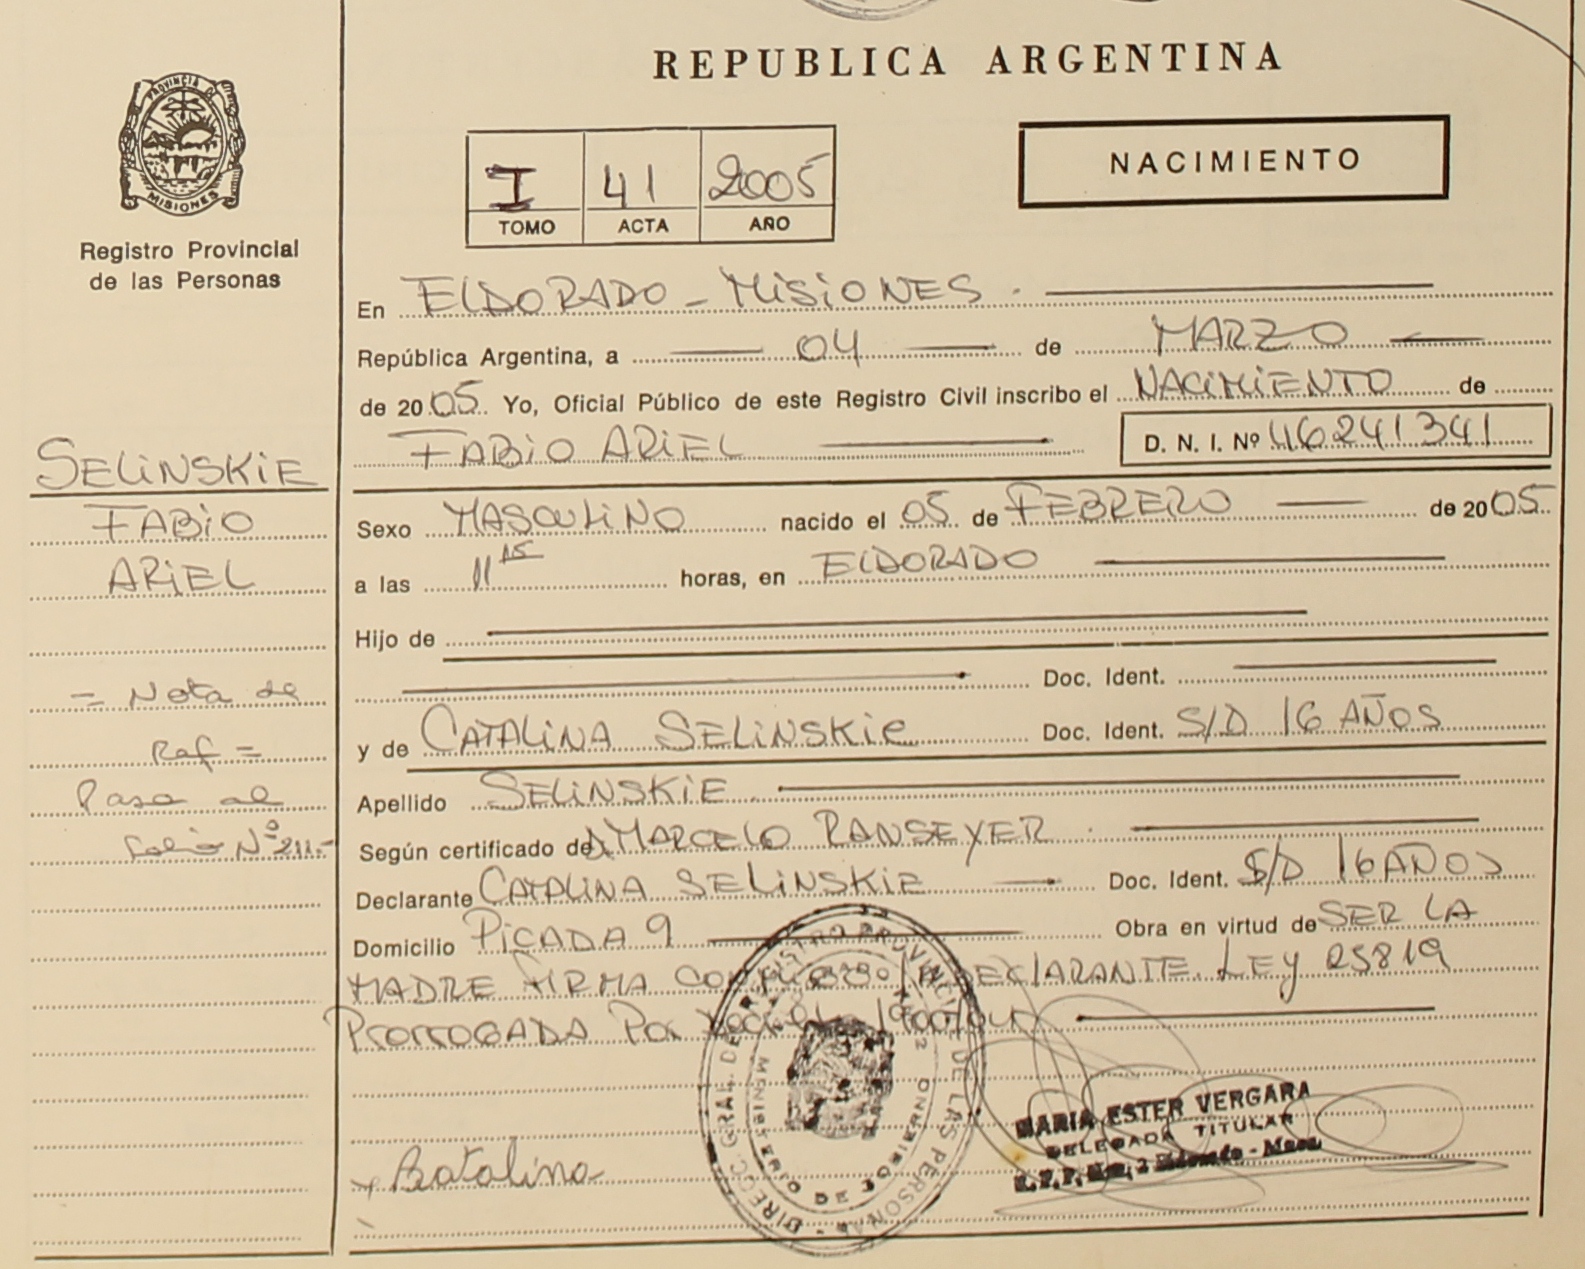 REPUBLICA ARGENTINA
PROVINCIA DE
MISIONES
Registro Provincial
de las Personas
I 41 2005
TOMO ACTA AÑO
NACIMIENTO
En ELDORADO - MISIONES.
República Argentina, a 04 de MARZO
de 2005. Yo, Oficial Público de este Registro Civil inscribo el NACIMIENTO de
FABIO ARIEL D. N. I. Nº 46241341
SELINSKIE
FABIO
ARIEL
Sexo MASCULINO nacido el 05 de FEBRERO de 2005
a las 11 15 horas, en ELDORADO
Hijo de
Doc. Ident.
y de CATALINA SELINSKIE Doc. Ident. S/D 16 AÑOS
Apellido SELINSKIE
Según certificado de MARCELO RANSEYER
Declarante CATALINA SELINSKIE Doc. Ident. S/D 16 AÑOS
Domicilio PICADA 9 Obra en virtud de SER LA
MADRE FIRMA DECLARANTE. LEY 25819
PRORROGADA POR
= Nota de
Ref =
Pasa al
folio Nº 211.-
Catalina
MARIA ESTER VERGARA
DELEGADA TITULAR
DIRECC. GRAL. DEL REGISTRO PROVINCIAL DE LAS PERSONAS
MINISTERIO DE GOBIERNO